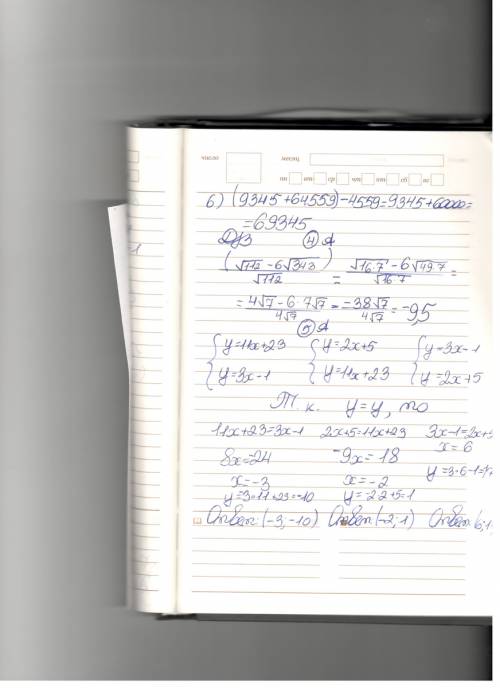 число месяц
пн вт ср чт пт сб вс
б) (9345+64559)-4559=9345+60000=
=69345
Д/З ④ А
(√112 - 6√343)/√112 = (√16·7 - 6√49·7)/√16·7 =
= (4√7 - 6·7√7)/4√7 = -38√7/4√7 = -9,5
⑤ А
{y=11x+23 {y=2x+5 {y=3x-1
{y=3x-1 {y=11x+23 {y=2x+5
Т.к. y=y, то
11x+23=3x-1 2x+5=11x+23 3x-1=2x+5
8x=-24 -9x=18 x=6
x=-3 x=-2 y=3·6-1=17
y=-3·11+23=-10 y=-2·2+5=1
Ответ: (-3;-10) Ответ: (-2;1) Ответ: (6;1